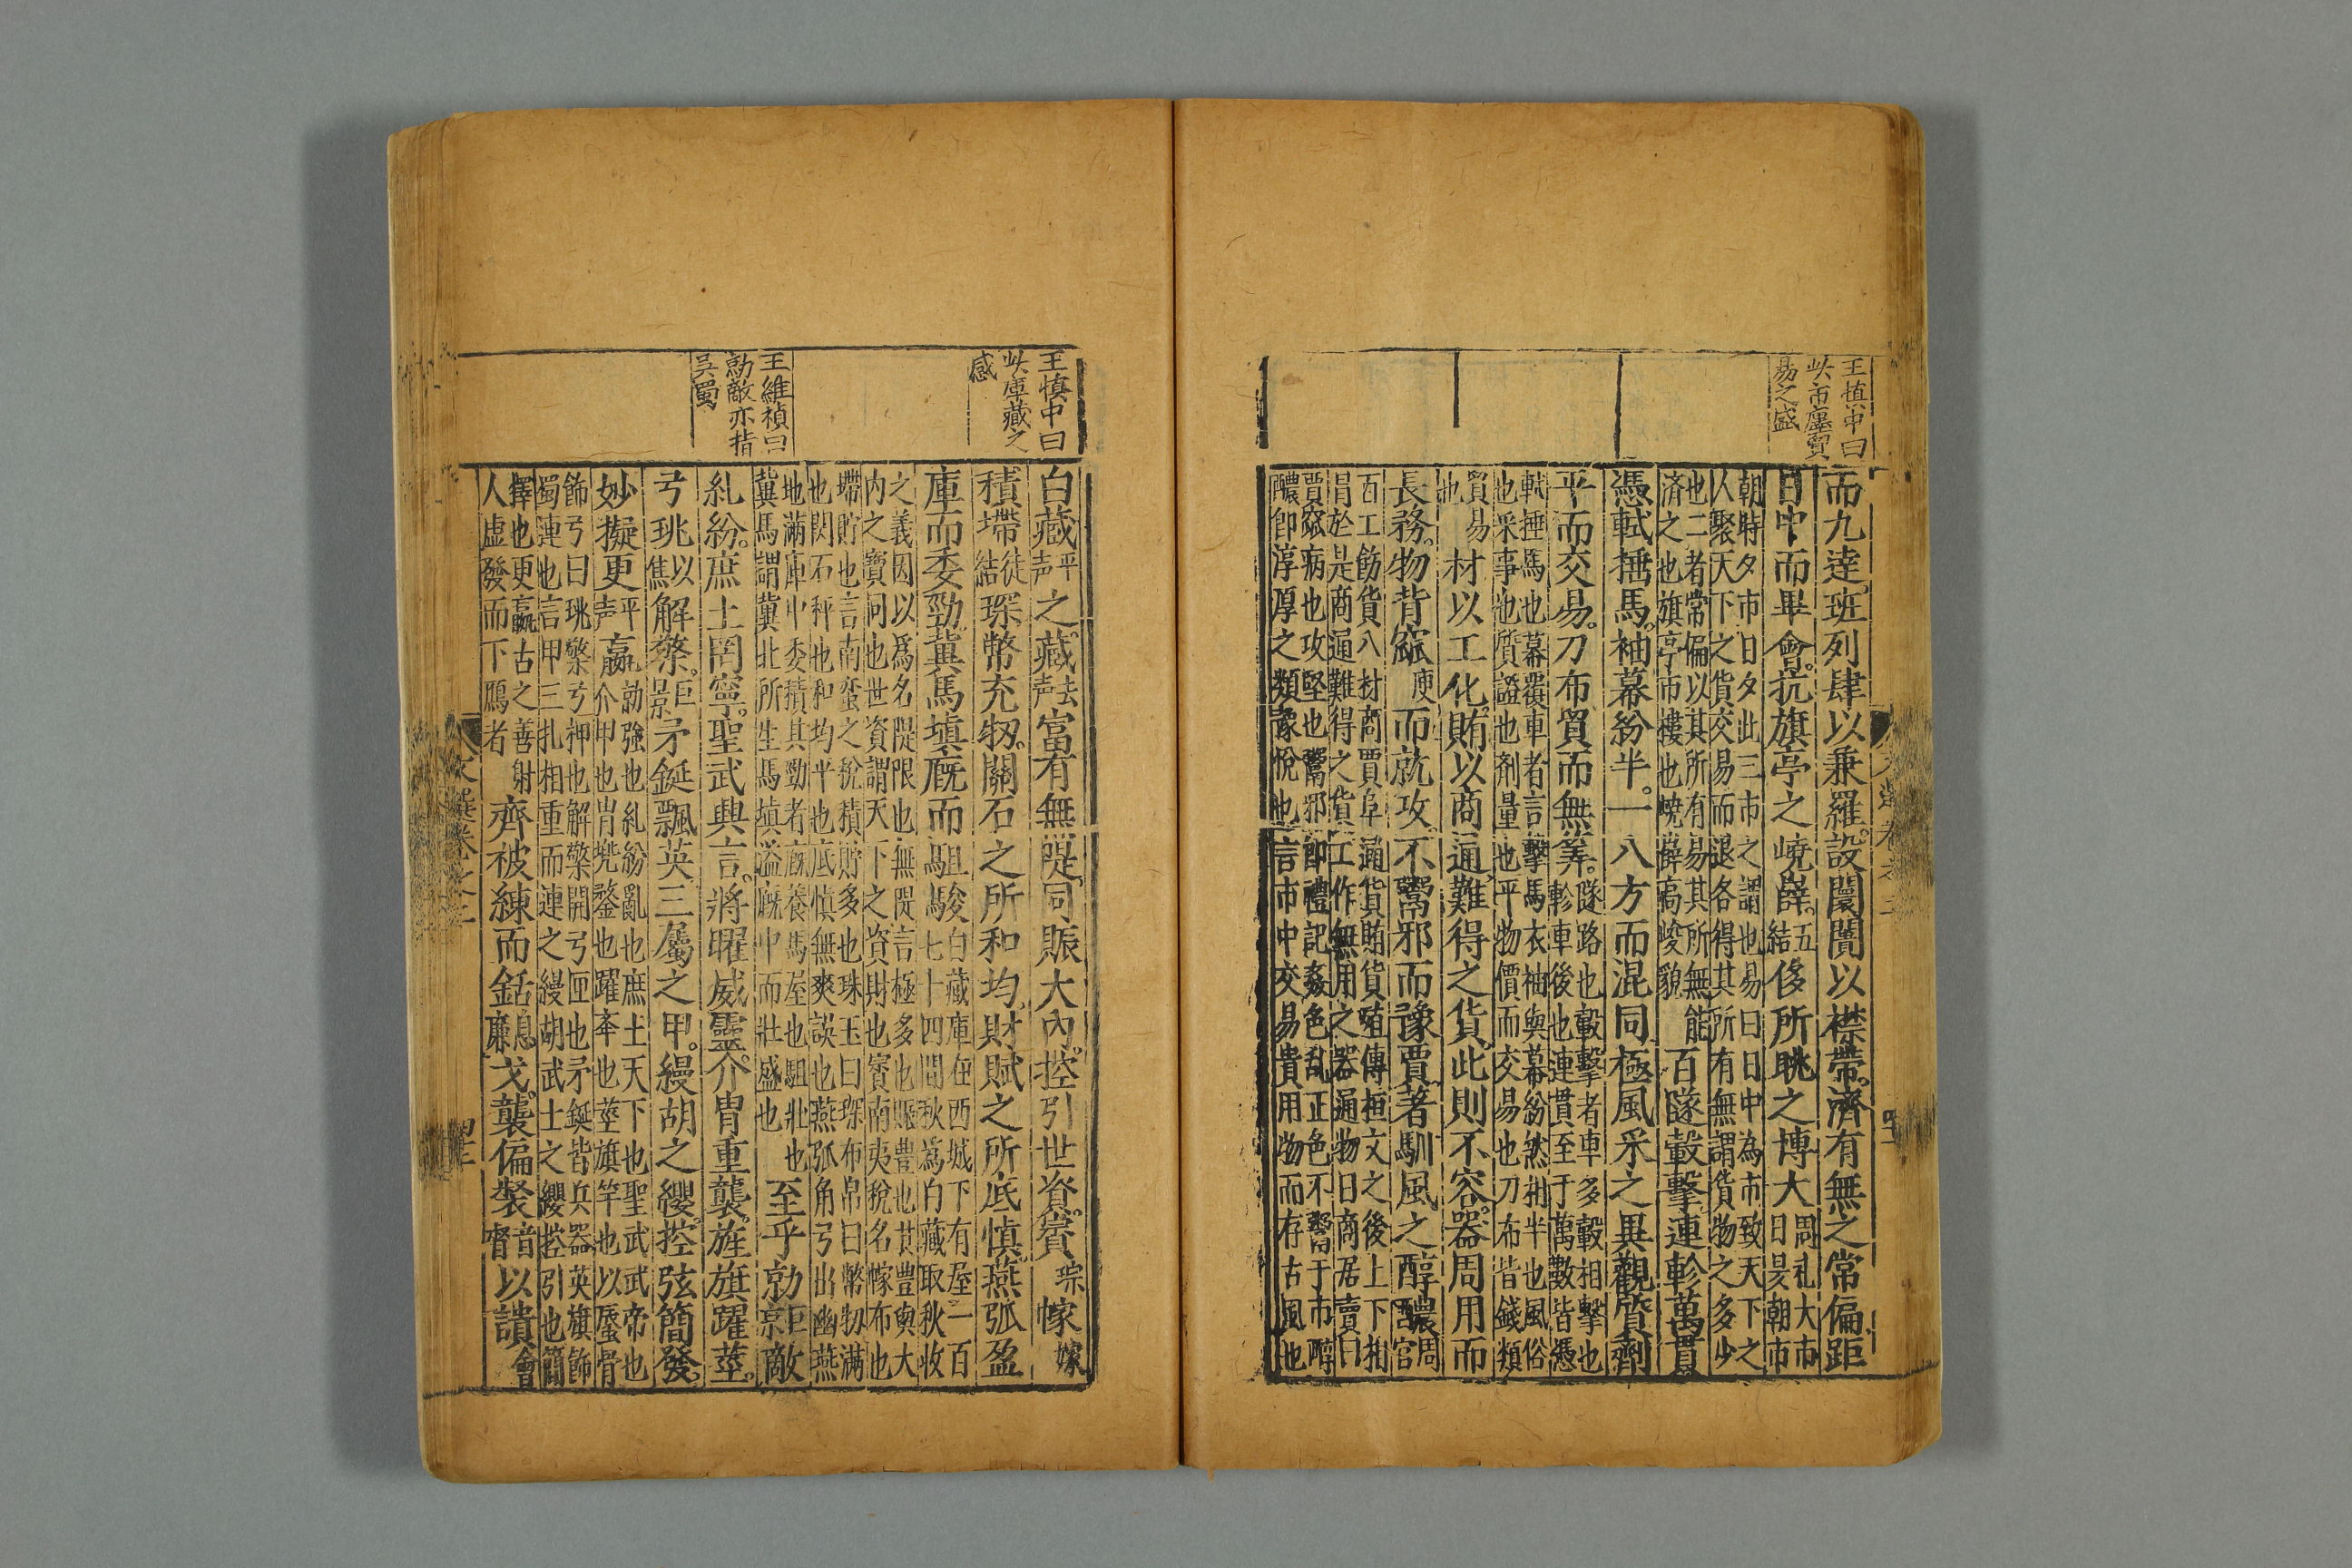 王慎中曰
此市廛貿
易之盛
而九逵班列肆以兼羅設闤闠以襟帶濟有無之常偏距
日中而畢會抗旗亭之嶢薛五結侈所眺之博大周礼大市日昃朝市
朝時夕市日夕此三市之謂也易曰日中為市致天下之
人聚天下之貨交易而退各得其所有無謂貨物之多少
也二者常偏以其所有易其所無能
濟之也旗亭市樓也嶢薛高峻貌
百隧轂擊連軫萬貫
憑軾捶馬袖幕紛半一八方而混同極風采之異觀質劑
平而交易刀布貿而無筭隧路也轂擊者車多轂相擊也
軫車後也連貫至于萬數皆憑
軾捶馬也幕覆車者言擊馬衣袖與幕紛然相半也風俗
也采事也質證也劑量也平物價而交易也刀布皆錢類
貿易也
材以工化賄以商通難得之貨此則不容器周用而
長務物背窳庾而就攻不鬻邪而豫賈著馴風之醇醲周官
百工飭貨八材商賈阜通貨賄貨殖傳桓文之後上下相
冐於是商通難得之貨工作無用之器通物曰商居賣曰
賈窳病也攻堅也鬻邪即禮記姦色乱正色不鬻于市醇
醲即淳厚之類豫悅也言市中交易貴用物而存古風也
王慎中曰
此庫藏之
感
王維禎曰
勍敵亦指
吳蜀
白藏平声之藏去声富有無隄同賑大內控引世資賨琮幏嫁
積墆徒結琛幣充牣關石之所和均財賦之所底慎燕弧盈
庫而委勁冀馬填廐而駔駿白藏庫在西城下有屋一百
七十四間秋為白藏取秋收
之義因以爲名隄限也無隄言極多也賑豐也甘豐與大
内之寶同也世資謂天下之資財也賨南夷稅名幏布也
墆貯也言南蛮之稅積貯多也珠玉曰琛布帛曰幣牣滿
也関石秤也和均平也底慎無爽誤也燕弧角弓出幽燕
地滿庫中委積其勁者廐養馬屋也駔壯也
冀馬謂冀北所生馬填溢廐中而壯盛也
至乎勍巨京敵
糺紛庶土罔寧聖武興言將曜威靈介冑重襲旌旗躍莖
弓珧以焦解檠巨景矛鋋飄英三屬之甲縵胡之纓控弦簡發
妙擬更平声嬴勍強也糺紛亂也庶土天下也聖武武帝也
介甲也冑兠鍪也躍奉也莖旗竿也以蜃骨
飾弓曰珧檠弓押也解檠開弓匣也矛鋋皆兵器英旗飾
蜀連也言甲三扎相重而連之縵胡武士之纓控引也簡
擇也更嬴古之善射
人虛發而下鴈者
齊被練而銛息廉戈襲偏裻音督以讀會